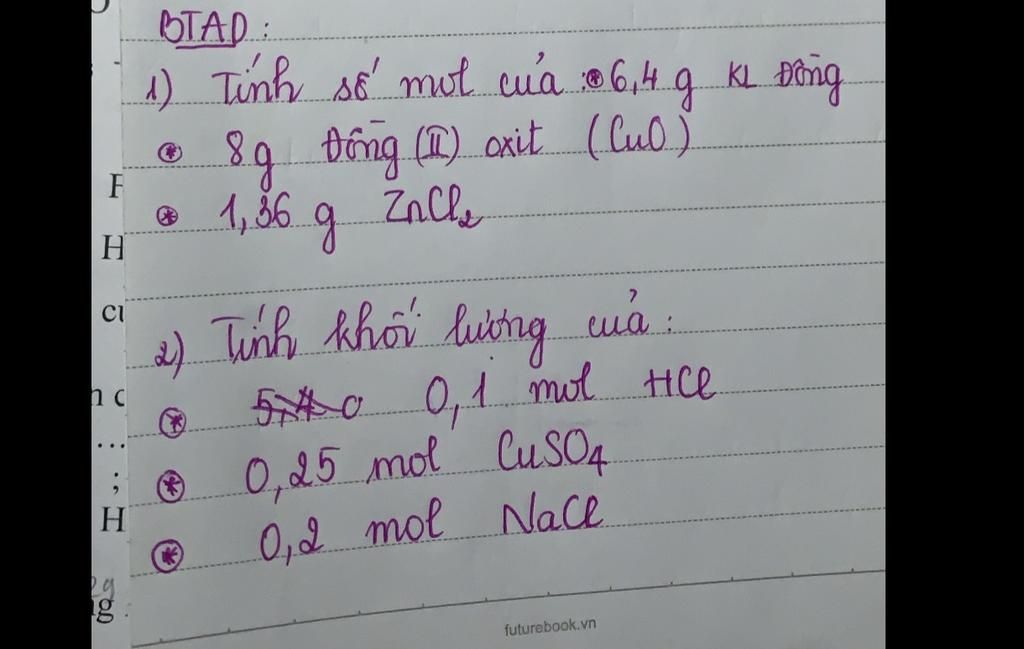 BTAD :
1) Tính số mol của : 6,4 g KL Đồng
8g Đồng (II) oxit (CuO)
1,36 g ZnCl2
2) Tính khối lượng của :
0,1 mol HCl
0,25 mol CuSO4
0,2 mol NaCl
futurebook.vn